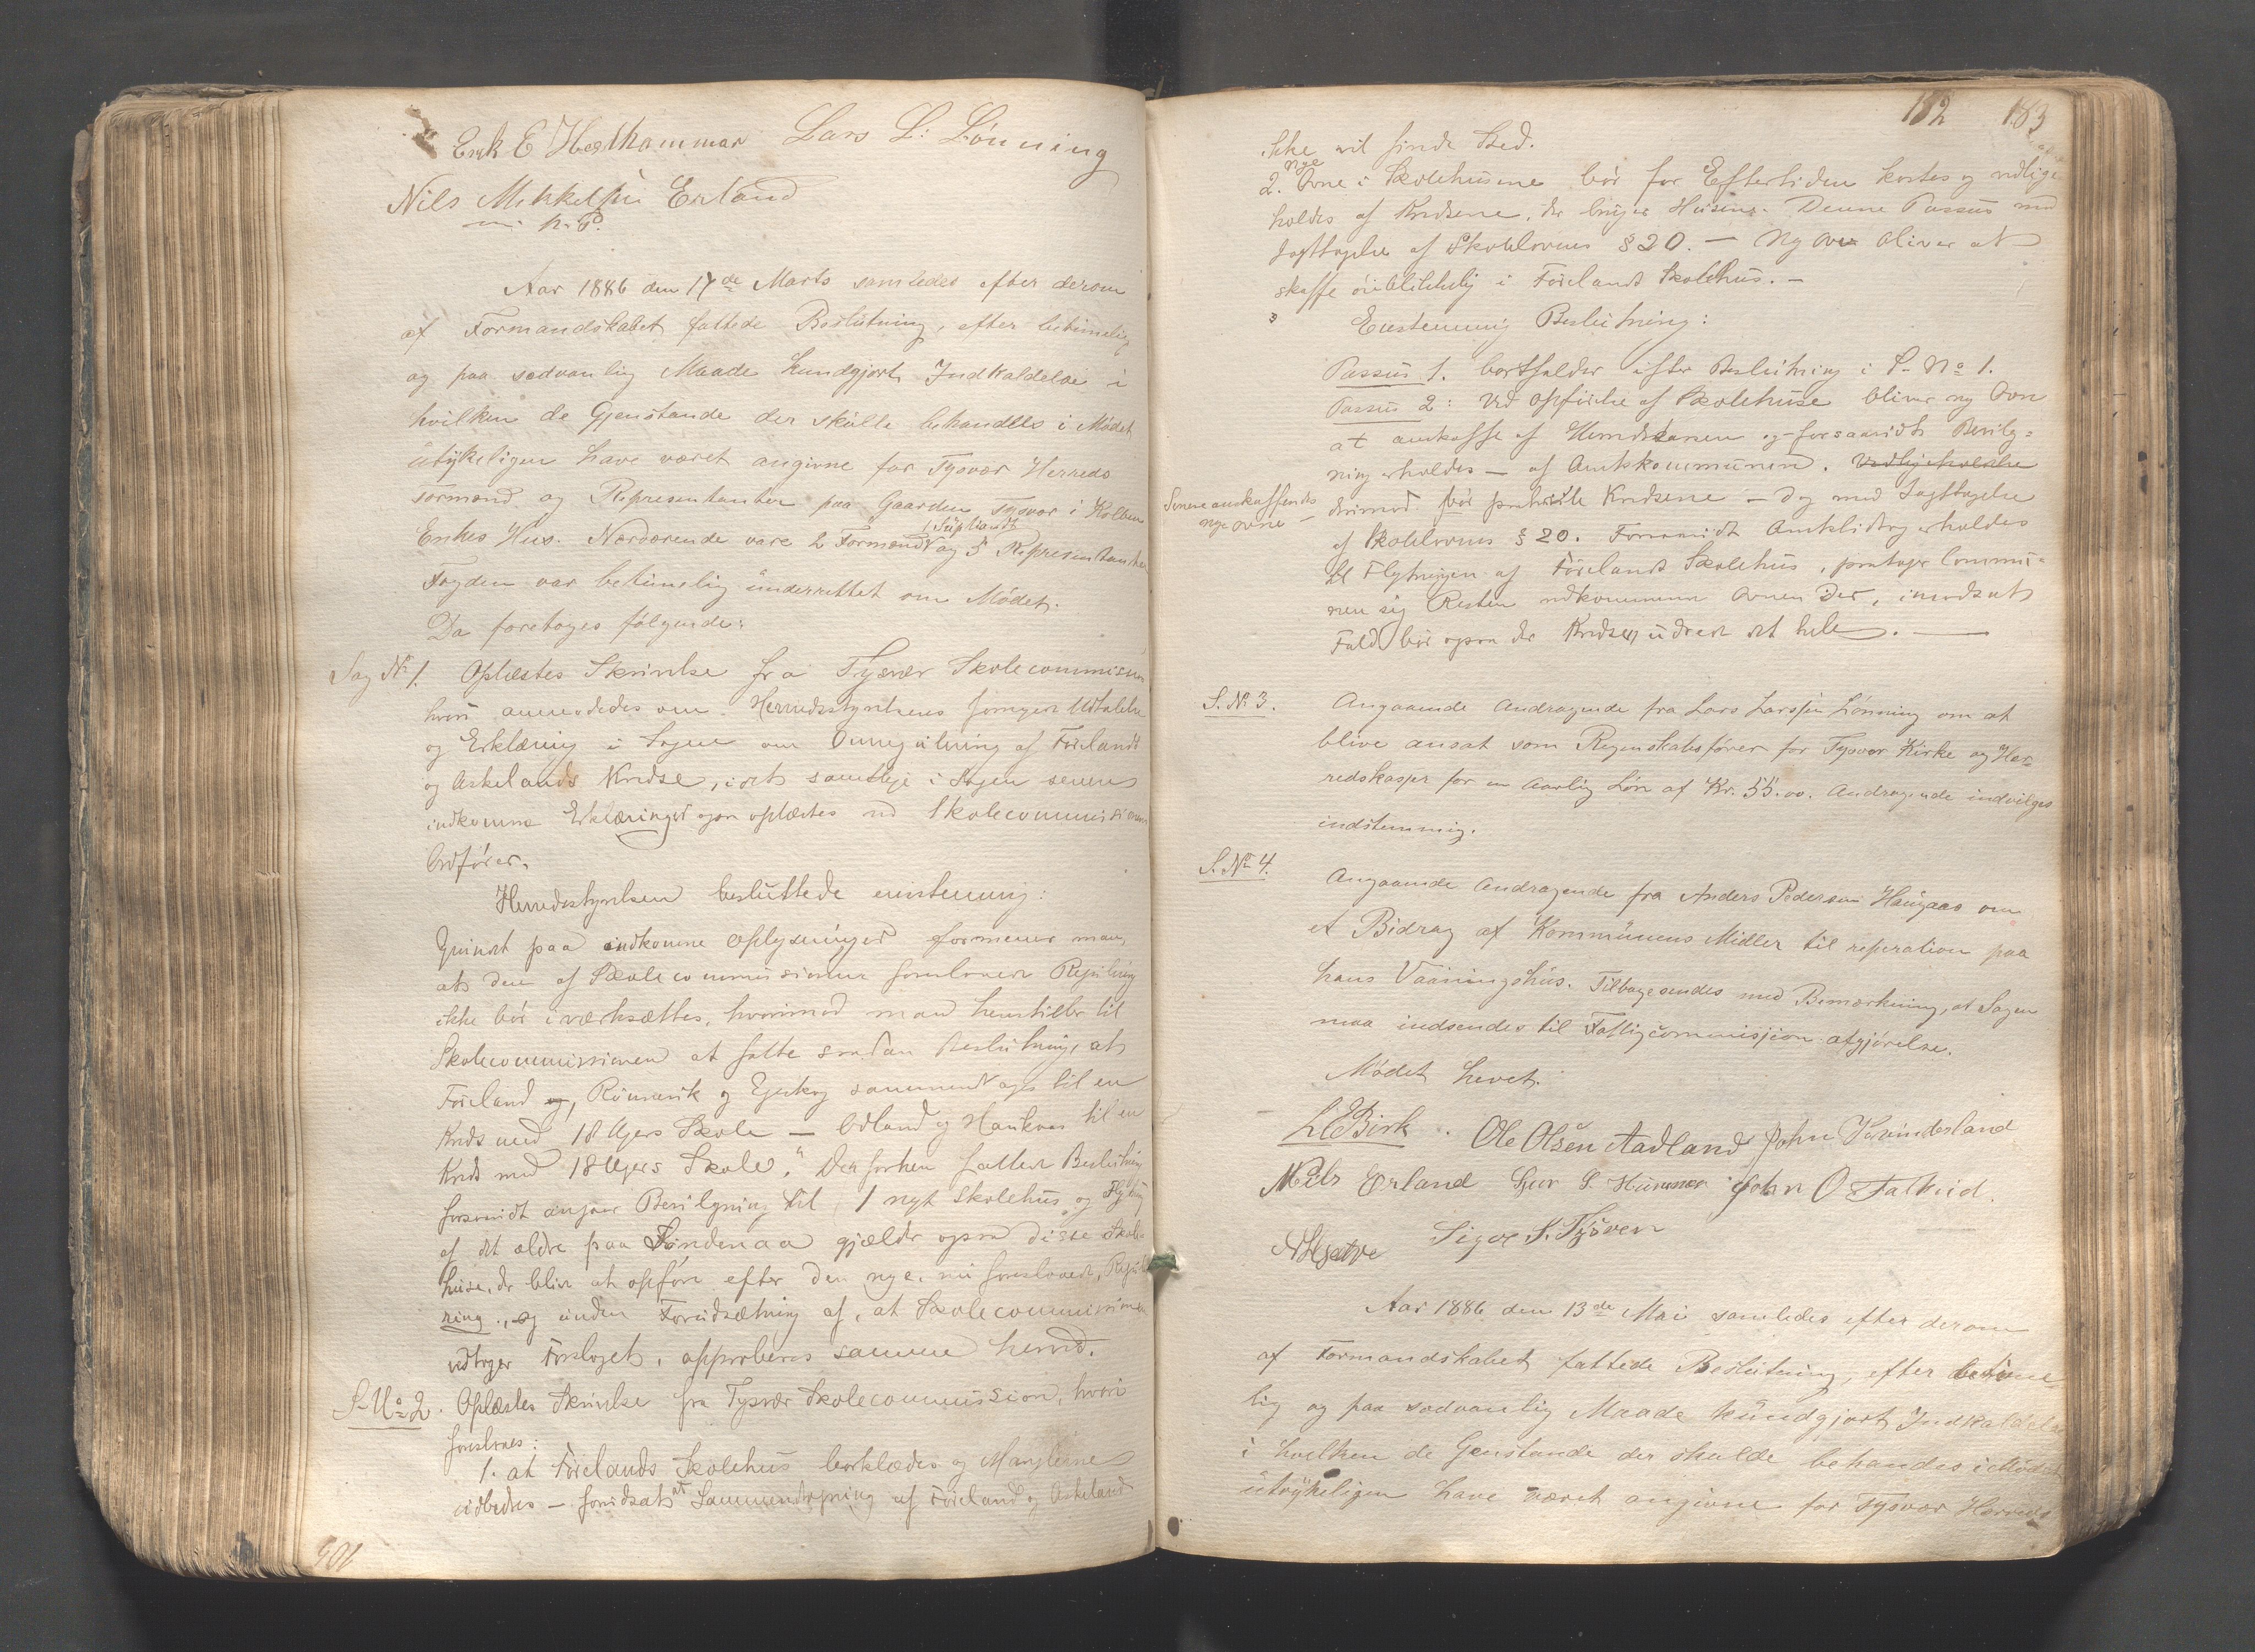 Erik E Hesthammar Lars L: Lönning
Nils Mikkelsen Erland
m. p. P.
Aar 1886 den 17de Marts samledes efter derom
af Formandskabet fattede Beslutning, efter betimelig
og paa sedvanlig Maade kundgjort Indkaldelse i
hvilken de Gjenstande der skulle behandles i Mødet
utrykeligen have været angivne for Tysvær Herreds
Formænd og Representanter paa Gaarden Tysvær i Kolben
Enkes Hus. Nærværende vare 2 Formænd
1 Supleant
og 5 Representanter
Fogden var betimelig underrettet om Mødet.
Da foretoges følgende:
Sag No 1. Oplæstes Skrivelse fra Tysvær Skolecommission
hvori anmodedes om Herredsstyrelsens fornyede Udtalelse
og Erklæring i Sagen om Omregulering af Førelands
og Askelands Kredse, idet samtlige i Sagen senere
indkomne Erklæringer ogsaa oplæstes ved Skolecommissionens
Ordfører.
Herredsstyrelsen besluttede enstemmig:
Grundet paa indkomne Oplysninger formener man,
at den af Skolecommissionen foreslaaede Regulering
ikke bør iværksættes, hvorimod man henstiller til
Skolecommissionen at fatte saadan Beslutning, at
Føreland og, Rømmerik og Epskog sammendrages til en
Kreds med 18 Ugers Skole — Odland og Hauknes til en
Kreds med 18 Ugers Skole." Den forhen fattede Beslutning
forsaavidt angaar Bevilgning til 1 nyt Skolehus og Flytning
af det ældre paa Sundenaa gjælder ogsaa disse Skole-
huse, der bliver at opføre efter den nye, nu foreslaaede, Regule-
ring., og under Forudsætning af, at Skolecommissionen
vedtager Forslaget, approberes samme herved.
S. No 2. Oplæstes Skrivelse fra Tysvær Skolecommission, hvori
foreslaaes:
1. at Førelands Skolehus bordklædes og Manglerne
udbedres — forudsat at Sammendragning af Føreland og Askeland
182 183
ikke vil finde Sted.
2. nye Ovne i Skolehusene bør for Eftertiden kostes og vedlige-
holdes af Kredsene, der bruger Husene. Denne Passus med
Iagttagelse af Skolelovens § 20. — Ny Ovn bliver at
skaffe øieblikkelig i Førelands Skolehus. —
Enstemmig Beslutning:
Passus 1. bortfalder efter Beslutning i S. No 1.
Passus 2: Ved Opførelse af Skolehuse bliver ny Ovn
at anskaffe af Herredskassen og forsaavidt Bevilg-
ning erholdes — af Amtskommunen. Vedligeholdelse
Senere anskaffende
nye ovne —
derimod bør paahvile Kredsene — dog med Iagttagelse
af Skolelovens § 20. Forsaavidt Amtsbidrag erholdes
til Flytningen af Førelands Skolehus, paatager Commu-
nen sig Resten vedkommende Ovnen der, i modsat
Fald bør ogsaa der Kredsen udrede det hele. —
S. No 3. Angaaende Andragende fra Lars Larsen Lønning om at
blive ansat som Regnskabsfører for Tysvær Kirke og Her-
redskasjer for en Aarlig Løn af Kr. 55.00. Andragende indvilges
indstemmig.
S. No 4. Angaaende Andragende fra Anders Pedersen Haugaas om
et Bidrag af Kommunens Midler til reperation paa
hans Vaaningshus. Tilbagesendes med Bemærkning, at Sagen
maa indsendes til Fattigcommisjion afgjørelse.
Mødet hevet.
L Birk. Ole Olsen Aadland John Kvinnesland
Nils Ørland Sjur S. Hummer John O Falkeid.
N Hetve Sigve S. Tysver
Aar 1886 den 13de Mai samledes efter derom
af Formandskabet fattede Beslutning, efter betime-
lig og paa sedvanlig Maade kundgjort Indkaldelse
i hvilken de Genstande der skulde behandes i Mødet
utrykeligen have været angivne for Tysvær Herreds